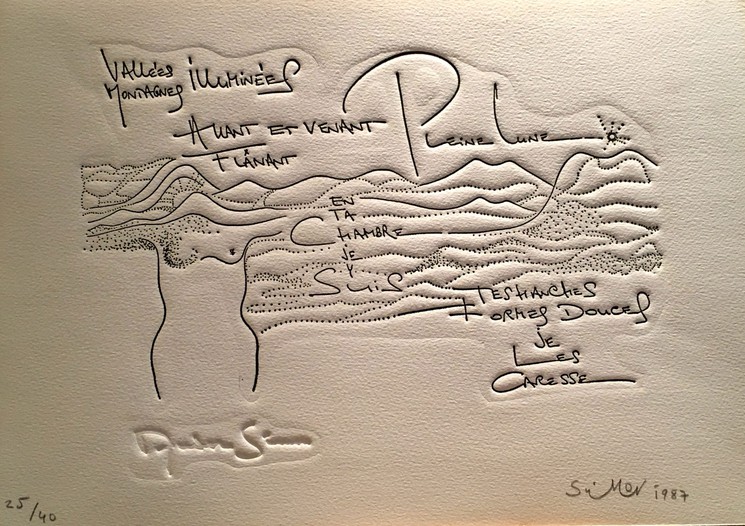 VALLÉES ILLUMINÉES
MONTAGNES
ALLANT ET VENANT PLEINE LUNE
FLÂNANT
EN
TA
CHAMBRE
JE
Y
SUIS
TES HANCHES
FORMES DOUCES
JE
LES
CARESSE
Simon
25/40
SiMON 1987